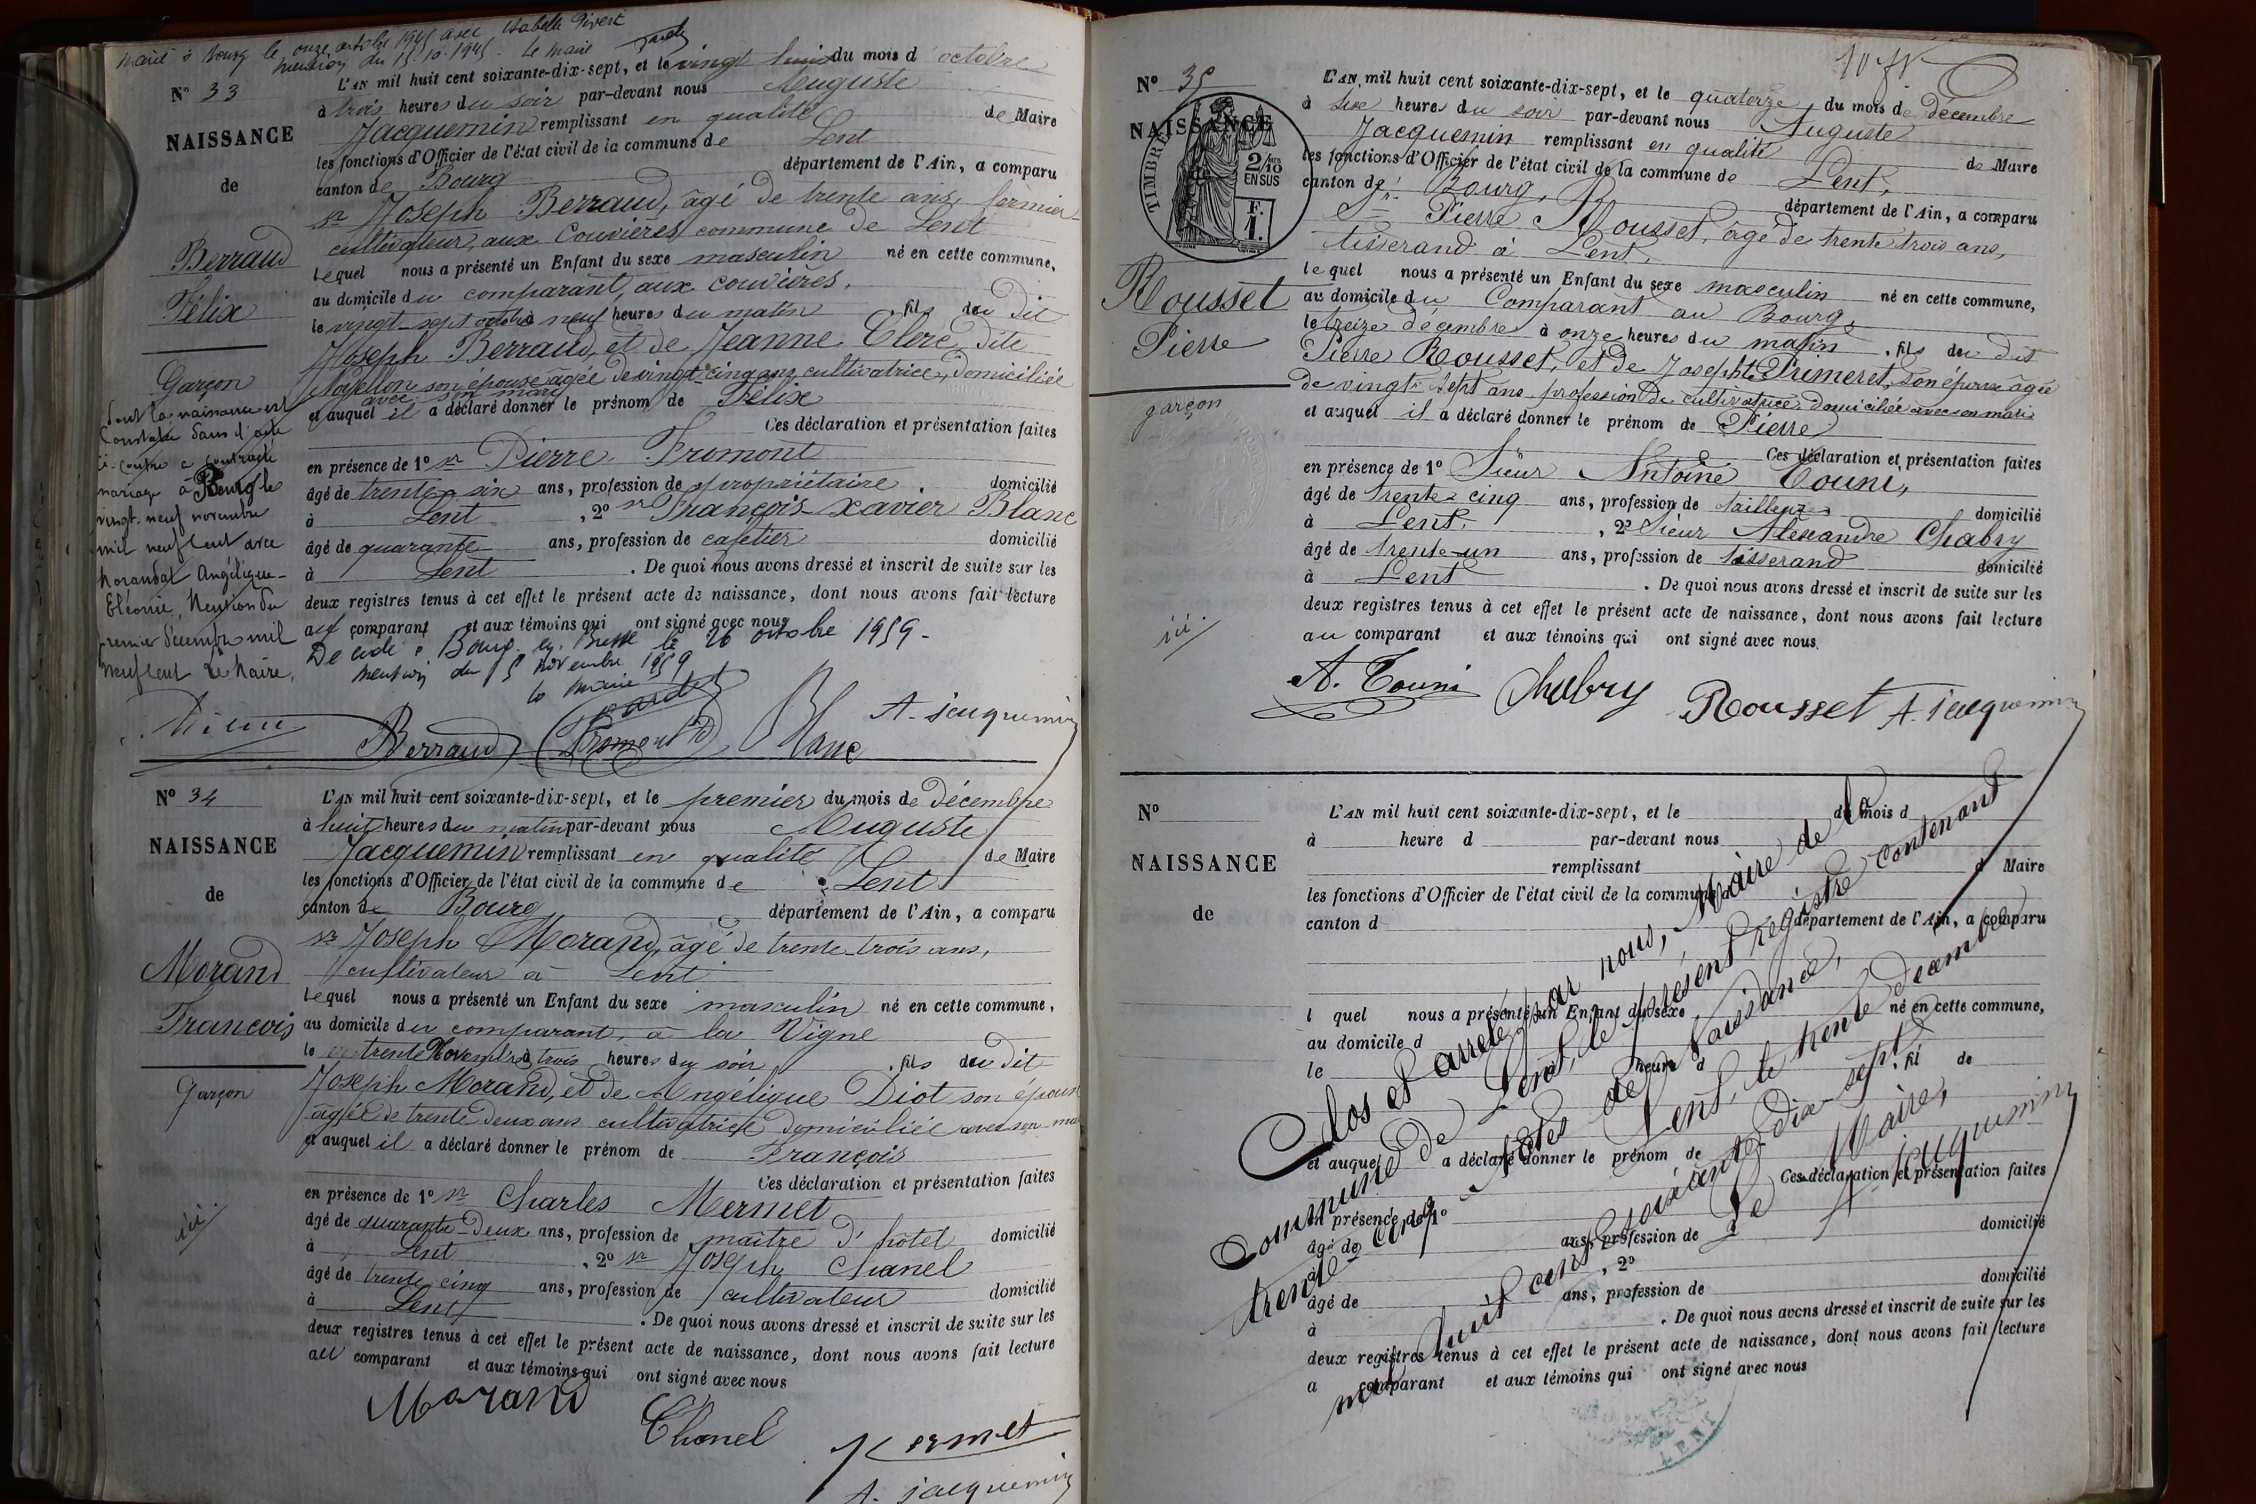 Marié à Bourg le onze octobre 1945 avec Isabelle Pivert
mention du 15-10-1945. Le Maire
N° 33
NAISSANCE
de
Berraud
Félix
Garçon
L'AN mil huit cent soixante-dix-sept, et le vingt huit du mois d octobre
à trois heures du soir par-devant nous Auguste
Jacquemin remplissant en qualité de Maire
les fonctions d'Officier de l'état civil de la commune de Lent
canton de Bourg département de l'Ain, a comparu
sr Joseph Berraud, âgé de trente ans, fermier-
cultivateur, aux Couvières commune de Lent
lequel nous a présenté un Enfant du sexe masculin né en cette commune,
au domicile du comparant, aux couvières,
le vingt-sept octobre à neuf heures du matin . fils du dit
Joseph Berraud, et de Jeanne Clerc, dite
son épouse âgée de vingt-cinq ans, cultivatrice, domiciliée
avec son mari
et auquel il a déclaré donner le prénom de Félix
Ces déclaration et présentation faites
en présence de 1° sr Pierre Fromont
âgé de trente six ans, profession de propriétaire domicilié
à Lent , 2° sr François-Xavier Blanc
âgé de quarante ans, profession de cafetier domicilié
à Lent . De quoi nous avons dressé et inscrit de suite sur les
deux registres tenus à cet effet le présent acte de naissance, dont nous avons fait lecture
au comparant et aux témoins qui ont signé avec nous
Décédé à Bourg-en-Bresse le 26 octobre 1959-
mention du 5 novembre 1959
le maire
dont la naissance est
constatée dans l'acte
ci-contre a contracté
mariage à Bourg le
vingt-neuf novembre
mil neuf cent avec
Morandat Angélique-
Eléonie. Mention du
premier Décembre mil
neuf cent Le Maire,
Berraud Fromont Blanc A. Jacquemin
N° 34
NAISSANCE
de
Morand
François
Garçon
L'AN mil huit cent soixante-dix-sept, et le premier du mois de Décembre
à huit heures du matin par-devant nous Auguste
Jacquemin remplissant en qualité de Maire
les fonctions d'Officier de l'état civil de la commune de Lent
canton de Bourg département de l'Ain, a comparu
sr Joseph Morand, âgé de trente-trois ans,
cultivateur à Lent
lequel nous a présenté un Enfant du sexe masculin né en cette commune,
au domicile du comparant, à la Vigne
le trente Novembre à trois heures du soir . fils du dit
Joseph Morand, et de Angélique Diot son épouse
âgée de trente deux ans cultivatrice domiciliée avec son mari
et auquel il a déclaré donner le prénom de François
Ces déclaration et présentation faites
en présence de 1° sr Charles Mermet
âgé de quarante-deux ans, profession de maître d'hôtel domicilié
à Lent , 2° sr Joseph Chanel
âgé de trente cinq ans, profession de cultivateur domicilié
à Lent . De quoi nous avons dressé et inscrit de suite sur les
deux registres tenus à cet effet le présent acte de naissance, dont nous avons fait lecture
au comparant et aux témoins qui ont signé avec nous
Morand Chanel Mermet
A. Jacquemin
N° 35
NAISSANCE
TIMBRE
2/10
EN SUS
F.
1.
Rousset
Pierre
garçon
L'AN mil huit cent soixante-dix-sept, et le quatorze du mois de Décembre
à six heures du soir par-devant nous Auguste
Jacquemin remplissant en qualité de Maire
les fonctions d'Officier de l'état civil de la commune de Lent,
canton de Bourg, département de l'Ain, a comparu
sr Pierre Rousset, âgé de trente trois ans,
tisserand à Lent,
lequel nous a présenté un Enfant du sexe masculin né en cette commune,
au domicile du Comparant au Bourg,
le treize décembre à onze heures du matin . fils du dit
Pierre Rousset, et de Josephte Primeret, son épouse âgée
de vingt-sept ans profession de cultivatrice, domiciliée avec son mari
et auquel il a déclaré donner le prénom de Pierre
Ces déclaration et présentation faites
en présence de 1° Sieur Antoine Touni,
âgé de trente-cinq ans, profession de tailleur domicilié
à Lent. , 2° Sieur Alexandre Chabry
âgé de trente-un ans, profession de tisserand domicilié
à Lent . De quoi nous avons dressé et inscrit de suite sur les
deux registres tenus à cet effet le présent acte de naissance, dont nous avons fait lecture
au comparant et aux témoins qui ont signé avec nous.
A. Touni Chabry Rousset A. Jacquemin
N°
NAISSANCE
de
L'AN mil huit cent soixante-dix-sept, et le du mois d
à heure d par-devant nous
remplissant d Maire
les fonctions d'Officier de l'état civil de la commune d
canton d département de l'Ain, a comparu
l quel nous a présenté un Enfant du sexe né en cette commune,
au domicile d
le heure d . fil de
et auquel a déclaré donner le prénom de
Ces déclaration et présentation faites
en présence de 1°
âgé de ans, profession de domicilié
à , 2°
âgé de ans, profession de domicilié
à . De quoi nous avons dressé et inscrit de suite sur les
deux registres tenus à cet effet le présent acte de naissance, dont nous avons fait lecture
a comparant et aux témoins qui ont signé avec nous
Clos et arrêté par nous, Maire de la
Commune de Lent, le présent registre contenant
trente-cinq Actes de Naissance,
Lent, le trente décembre
mil huit cent soixante-dix-sept.
Le Maire,
A. Jacquemin
LENT